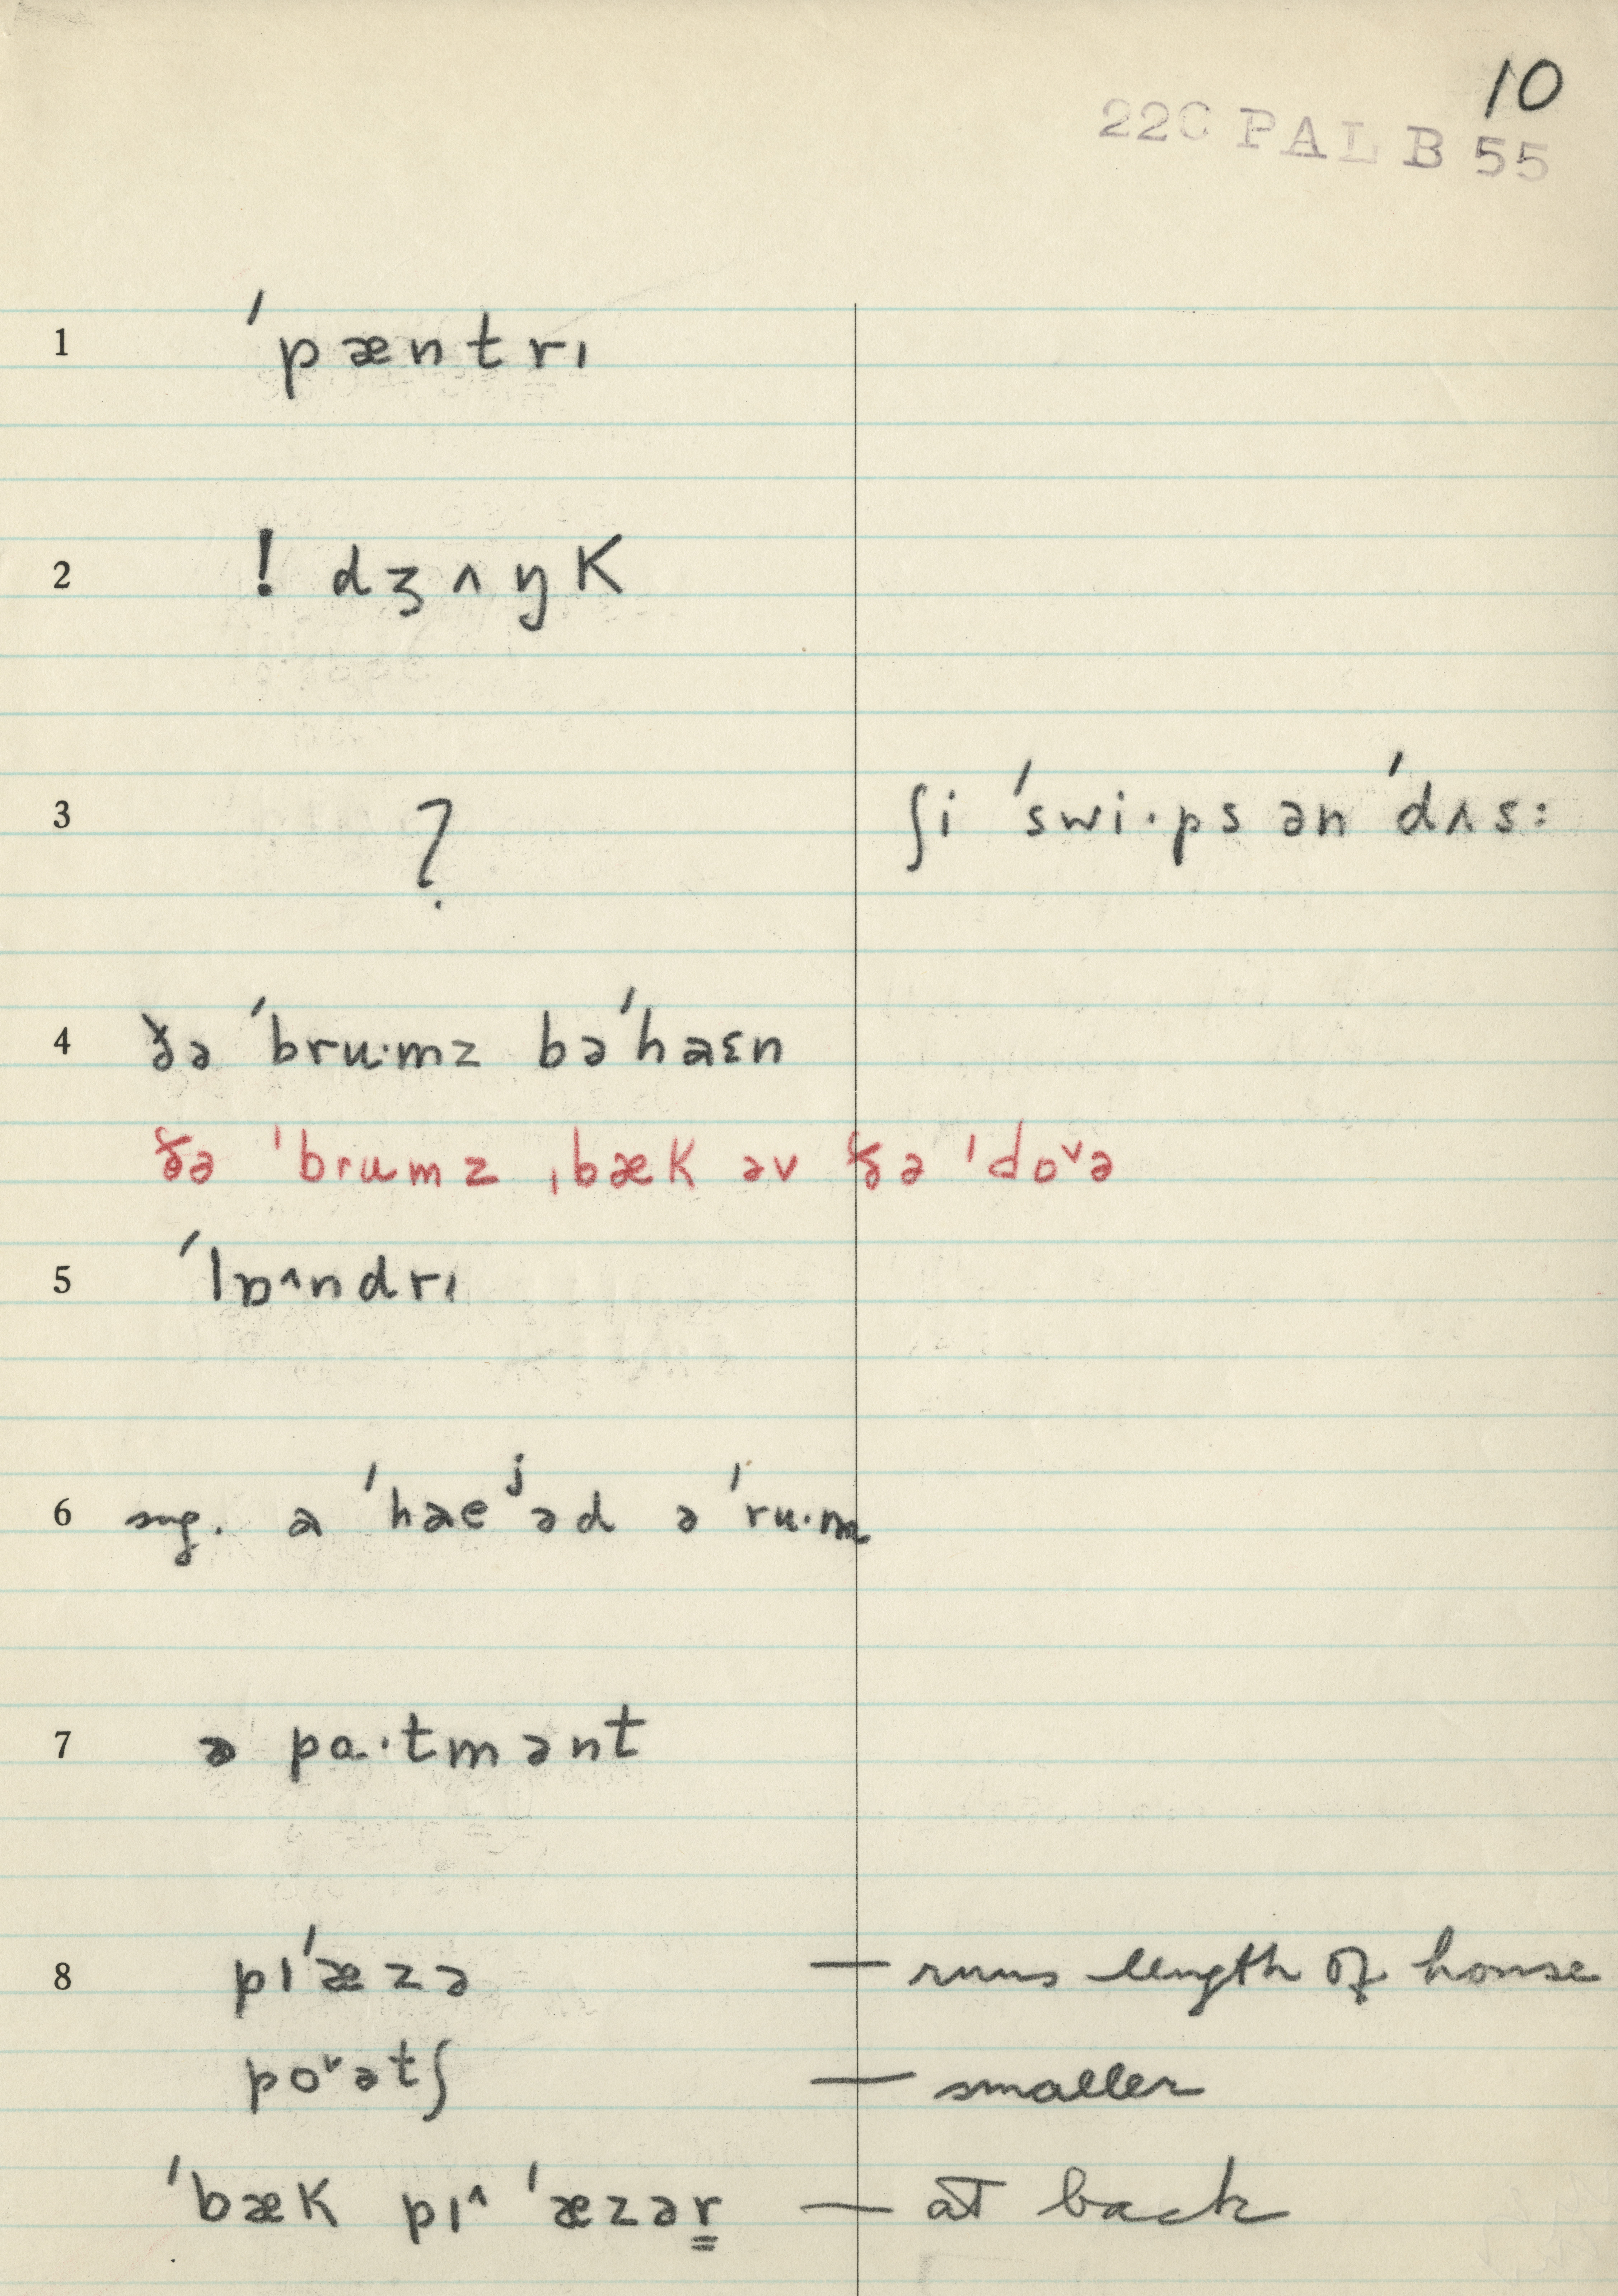 10
220 PAL B 55
1 ˈpæntrɪ
2 ! dʒʌŋK
3 ? ʃi ˈswi·ps ən ˈdʌs:
4 ðə ˈbru·mz bəˈhaɛn
ðə ˈbrumz ˌbæK əv ðə ˈdo˅ə
5 ˈlɒ^ndrɪ
6 sug. a ˈhaeʲəd ə ˈru·m
7 ə pa·tmənt
8 pɪˈæzə — runs length of house
po˅ətʃ — smaller
ˈbæK pɪ^ ˈæzər̳ — at back